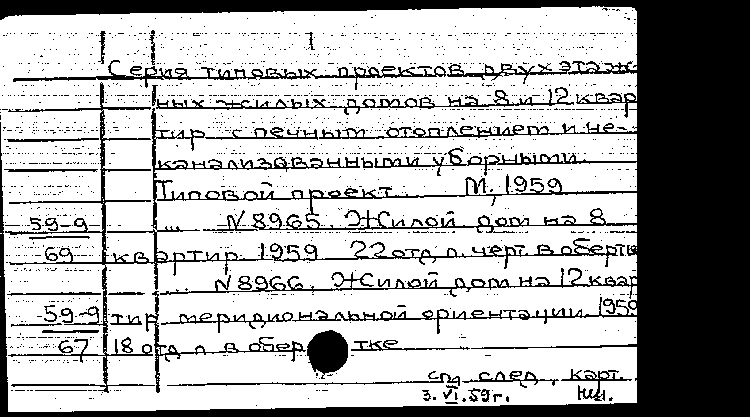 Серия типовых проектов двухэтаж-
ных жилых домов на 8 и 12 квар
тир с печным отоплением и не-
канализованными уборными.
Типовой проект. М., 1959
59-9 ... N 8965. Жилой дом на 8
69 квартир. 1959 22 отд л. черт. в обертке
... N 8966. Жилой дом на 12 квар
59-9 тир меридиональной ориентации. 1959
67 18 отд л в обер тке
см. след. карт.
3.VI.59г.